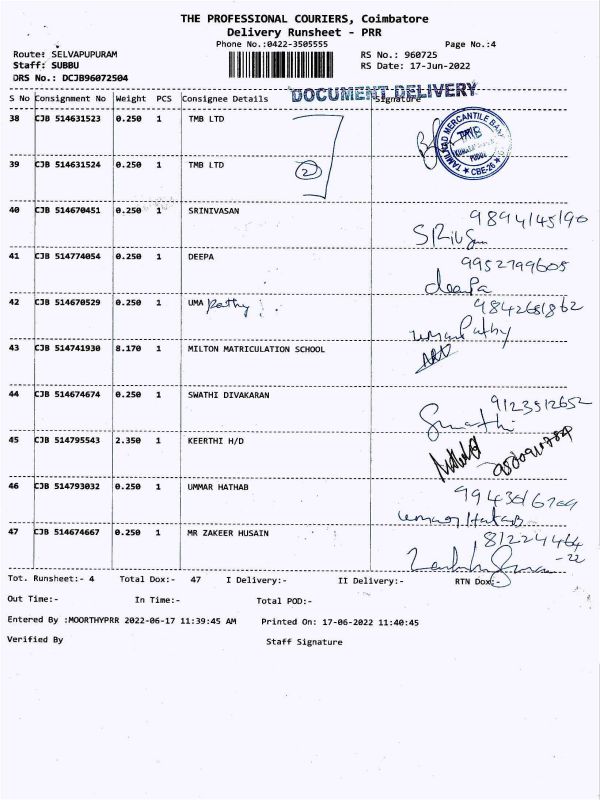 THE PROFESSIONAL COURIERS, Coimbatore
Delivery Runsheet - PRR
Phone No.:0422-3505555 Page No.:4
Route: SELVAPUPURAM RS No.: 960725
Staff: SUBBU RS Date: 17-Jun-2022
DRS No.: DCJB96072504
DOCUMENT DELIVERY
S No Consignment No Weight PCS Consignee Details Signature
38 CJB 514631523 0.250 1 TMB LTD
TAMILNAD MERCANTILE BANK
TMB
CBE-26
39 CJB 514631524 0.250 1 TMB LTD 2
40 CJB 514670451 0.250 1 SRINIVASAN 9894145190
41 CJB 514774054 0.250 1 DEEPA 9952799605
deepa
42 CJB 514670529 0.250 1 UMA Pathy 9842681862
umaPathy
43 CJB 514741930 8.170 1 MILTON MATRICULATION SCHOOL
44 CJB 514674674 0.250 1 SWATHI DIVAKARAN 9123512652
45 CJB 514795543 2.350 1 KEERTHI H/D
46 CJB 514793032 0.250 1 UMMAR HATHAB
47 CJB 514674667 0.250 1 MR ZAKEER HUSAIN 81224464
-22
Tot. Runsheet:- 4 Total Dox:- 47 I Delivery:- II Delivery:- RTN Dox:-
Out Time:- In Time:- Total POD:-
Entered By :MOORTHYPRR 2022-06-17 11:39:45 AM Printed On: 17-06-2022 11:40:45
Verified By Staff Signature